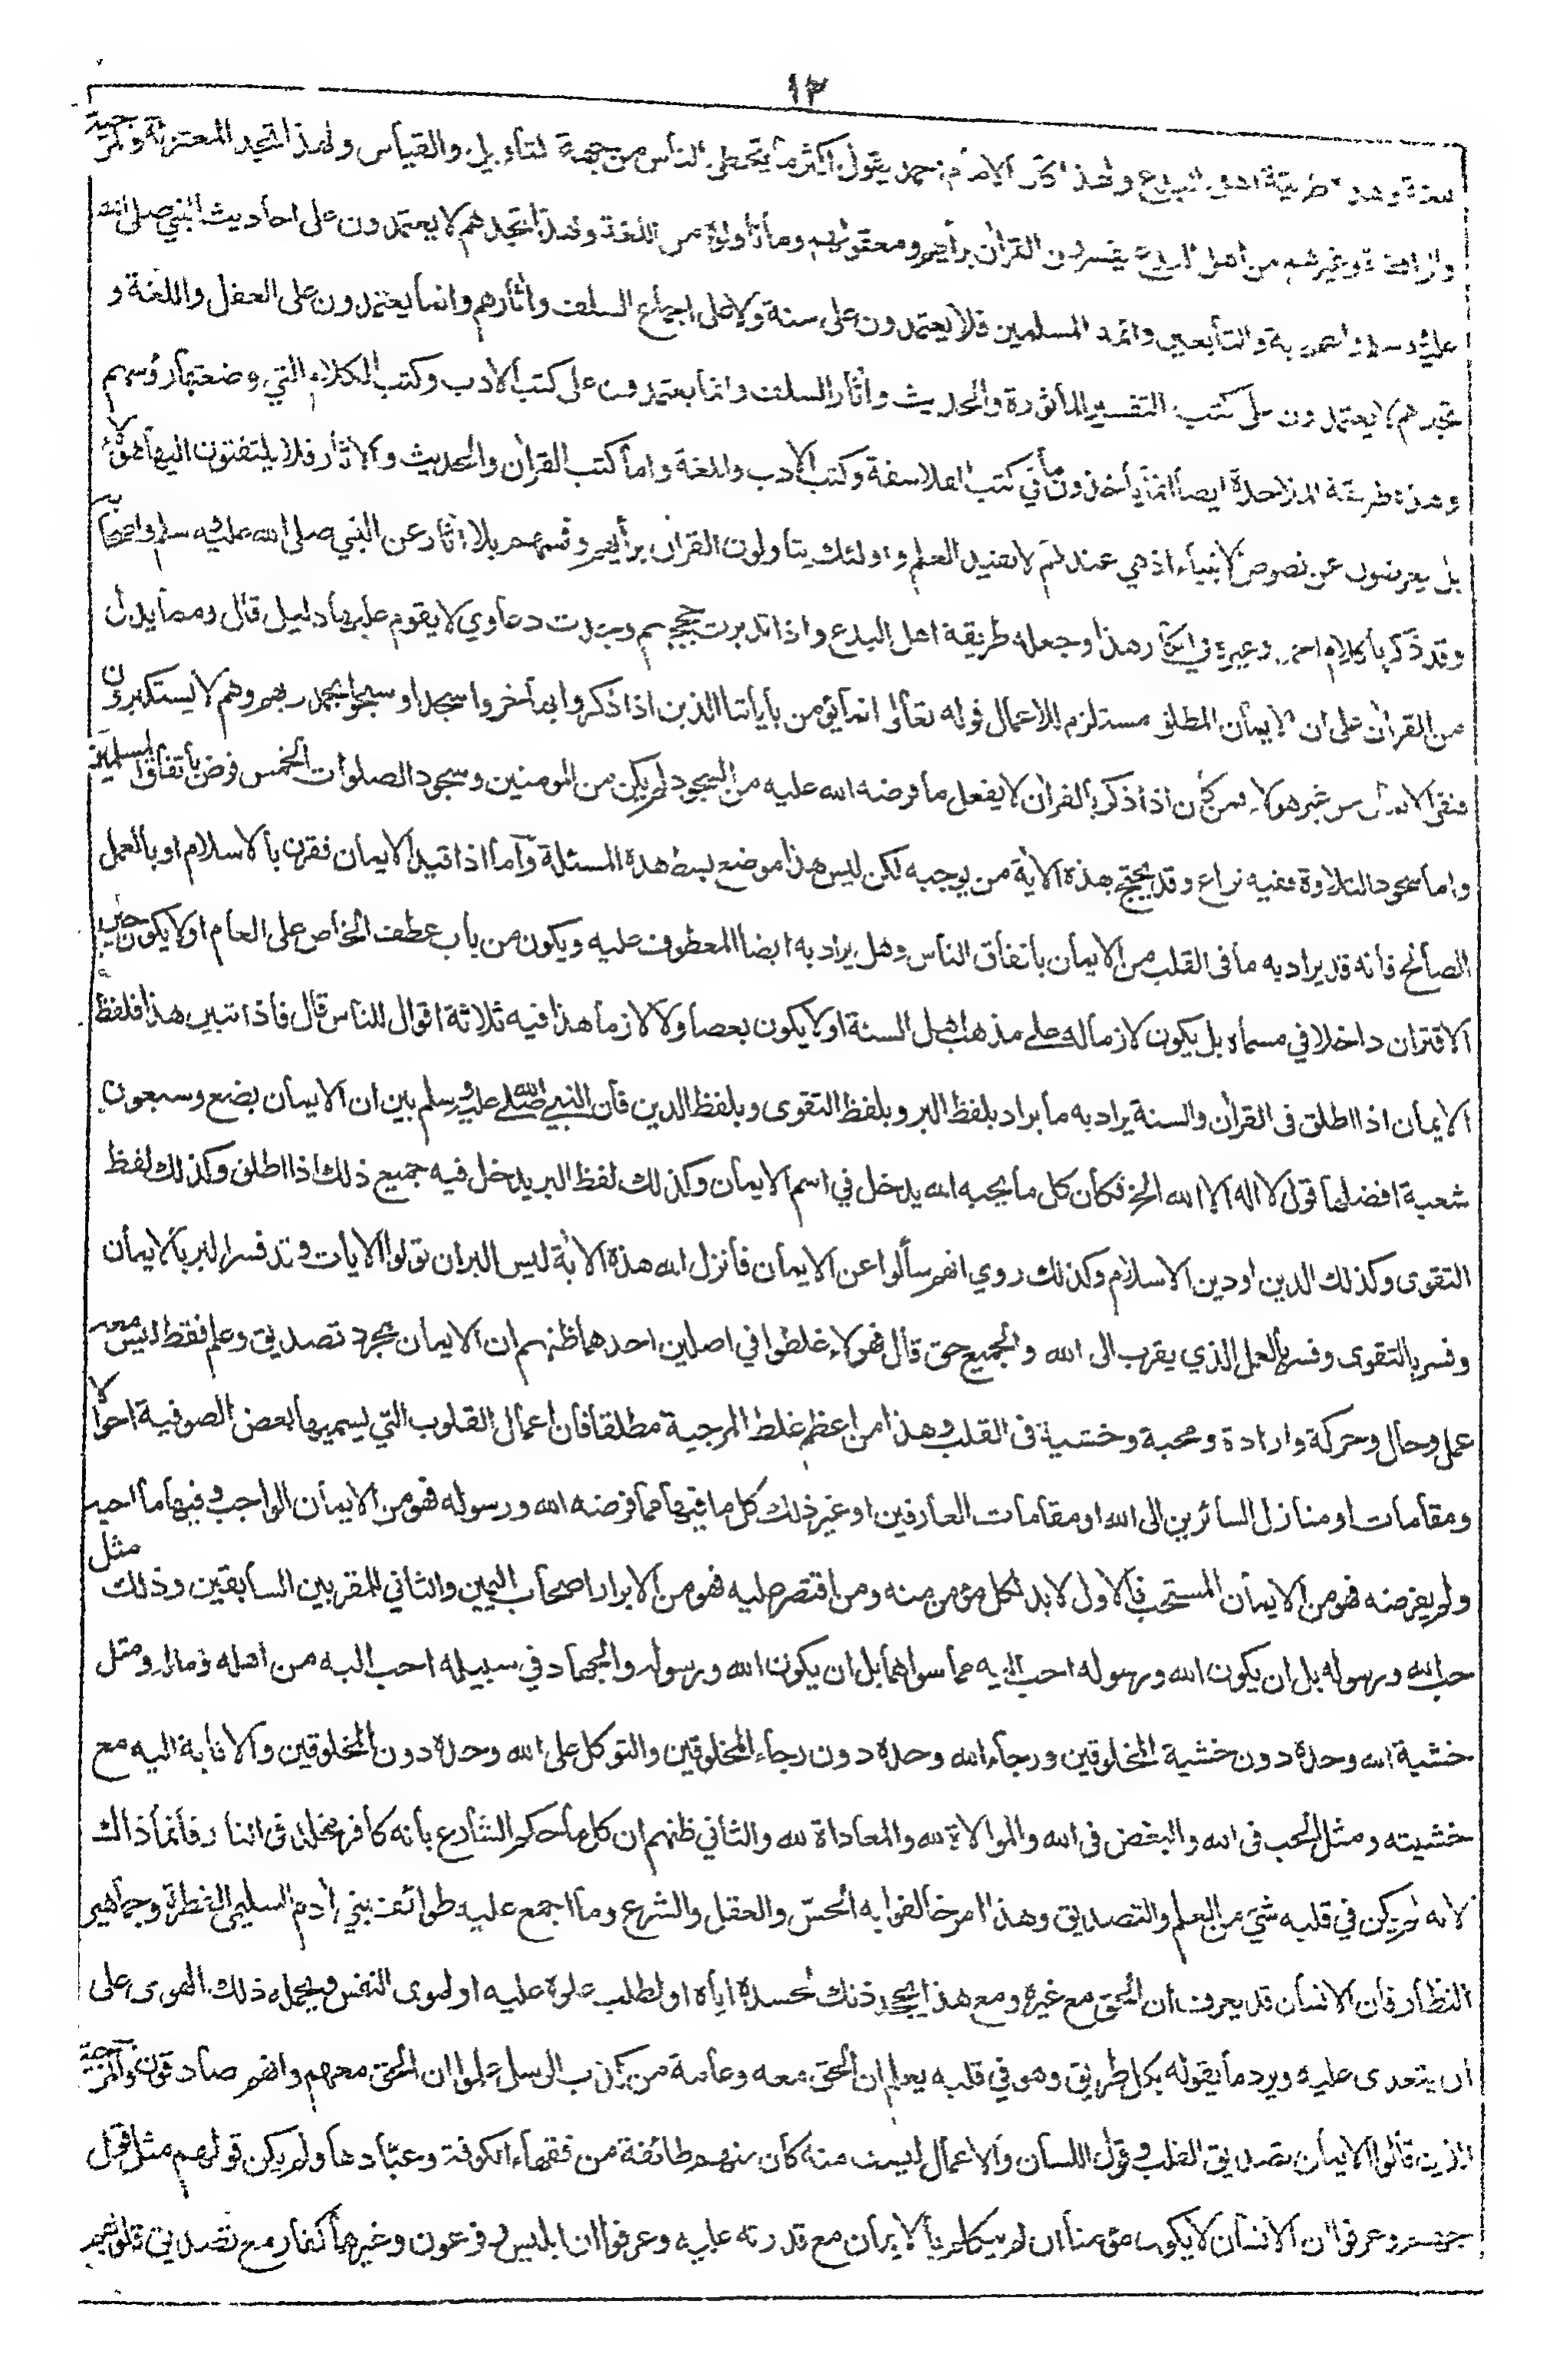 ١٣
لغة وهذه طريقة اهل البدع ولهذا كان الامام احمد يقول اكثر ما يخطئ الناس من جهة التأويل والقياس ولهذا تجد المعتزلة والمرجية
والرافضة وغيرهم من اهل البدع يفسرون القرآن برأيهم ومعقولهم وما تأولوه من اللغة ولهذا تجدهم لا يعتمدون على احاديث النبي صلى الله
عليه وسلم والصحابة والتابعين وائمة المسلمين فلا يعتمدون على سنة ولا على اجماع السلف وآثارهم وانما يعتمدون على العقل واللغة و
تجدهم لا يعتمدون على كتب التفسير المأثورة والحديث وآثار السلف وانما يعتمدون على كتب الادب وكتب الكلام التي وضعتها رؤسهم
وهذه طريقة الملاحدة ايضا انما يأخذون ما في كتب الفلاسفة وكتب الادب واللغة واما كتب القرآن والحديث والآثار فلا يلتفتون اليها هؤلاء
بل يعرضون عن نصوص الانبياء اذ هي عندهم لا تفيد العلم واولئك يتأولون القرآن برأيهم وفهمهم بلا آثار عن النبي صلى الله عليه وسلم واصحابه
وقد ذكرنا كلام احمد وغيره في انكار هذا وجعله طريقة اهل البدع واذا تدبرت حججهم وجدت دعاوي لا يقوم عليها دليل قال ومما يدل
من القرآن على ان الايمان المطلق مستلزم للاعمال قوله تعالى انما يؤمن بآياتنا الذين اذا ذكروا بها خروا سجدا وسبحوا بحمد ربهم وهم لا يستكبرون
فنفى الايمان من غير هولاء فمن كان اذا ذكر بالقرآن لا يفعل ما فرضه الله عليه من السجود لم يكن من المومنين وسجود الصلوات الخمس فرض باتفاق المسلمين
واما سجود التلاوة ففيه نزاع وقد يحتج بهذه الآية من يوجبه لكن ليس هذا موضع بسط هذه المسئلة وأما اذا قيد الايمان فقرن بالاسلام او بالعمل
الصالح فانه قد يراد به ما في القلب من الايمان باتفاق الناس وهل يراد به ايضا المعطوف عليه ويكون من باب عطف الخاص على العام او لا يكون حين
الاقتران داخلا في مسماه بل يكون لازما له على مذهب اهل السنة او لا يكون بعضا ولا لازما هذا فيه ثلاثة اقوال للناس قال فاذا تبين هذا فلفظ
الايمان اذا اطلق في القرآن والسنة يراد به ما يراد بلفظ البر وبلفظ التقوى وبلفظ الدين فان النبي صلى الله عليه وسلم بين ان الايمان بضع وسبعون
شعبة افضلها قول لا اله الا الله الخ فكان كل ما يحبه الله يدخل في اسم الايمان وكذلك لفظ البر يدخل فيه جميع ذلك اذا اطلق وكذلك لفظ
التقوى وكذلك الدين او دين الاسلام وكذلك روي انهم سألوا عن الايمان فأنزل الله هذه الآية ليس البر ان تولوا الآيات وقد فسر البر بالايمان
وفسر بالتقوى وفسر بالعمل الذي يقرب الى الله والجميع حق قال فهولاء غلطوا في اصلين احدهما ظنهم ان الايمان مجرد تصديق وعلم فقط ليس معه
عمل وحال وحركة وارادة ومحبة وخشية في القلب وهذا من اعظم غلط المرجية مطلقا فان اعمال القلوب التي يسميها بعض الصوفية احوالا
ومقامات او منازل السائرين الى الله او مقامات العارفين او غير ذلك كل ما فيها مما فرضه الله ورسوله فهو من الايمان الواجب وفيها ما احبه
ولم يفرضه فهو من الايمان المستحب فالاول لا بد لكل مؤمن منه ومن اقتصر عليه فهو من الابرار اصحاب اليمين والثاني للمقربين السابقين وذلك مثل
حب الله ورسوله بل ان يكون الله ورسوله احب اليه مما سواهما بل ان يكون الله ورسوله والجهاد في سبيله احب اليه من اهله وماله ومثل
خشية الله وحده دون خشية المخلوقين ورجاء الله وحده دون رجاء المخلوقين والتوكل على الله وحده دون المخلوقين والانابة اليه مع
خشيته ومثل الحب في الله والبغض في الله والموالاة لله والمعاداة لله والثاني ظنهم ان كل ما حكم الشارع بأنه كافر مخلد في النار فانما ذاك
لانه لم يكن في قلبه شيء من العلم والتصديق وهذا امر خالفوا به الحس والعقل والشرع وما اجمع عليه طوائف بني آدم السليمي الفطرة وجماهير
النظار فان الانسان قد يعرف ان الحق مع غيره ومع هذا يجحد ذلك لحسده اياه او لطلب علوه عليه او لهوى النفس ويحمله ذلك الهوى على
ان يتعدى عليه ويرد ما يقوله بكل طريق وهو في قلبه يعلم ان الحق معه وعامة من كذب الرسل علموا ان الحق معهم وانهم صادقون والمرجية
الذين قالوا الايمان تصديق القلب وقول اللسان والاعمال ليست منه كان منهم طائفة من فقهاء الكوفة وعبادها ولم يكن قولهم مثل قول
جهم وعرفوا ان الانسان لا يكون مؤمنا ان لم يتكلم بالايمان مع قدرته عليه وعرفوا ان ابليس وفرعون وغيرهما كفار مع تصديق قلوبهم